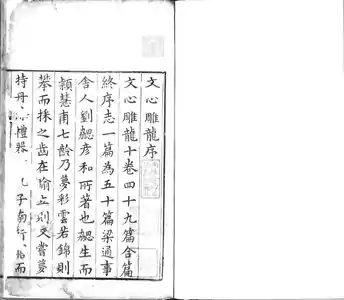 文心雕龍序
文心雕龍十卷四十九篇合篇
終序志一篇為五十篇梁通事
舍人劉勰彦和所著也勰生而
穎慧甫七齡乃夢彩雲若錦則
攀而採之齒在踰立則又嘗夢
持丹 禮器 子南行 而